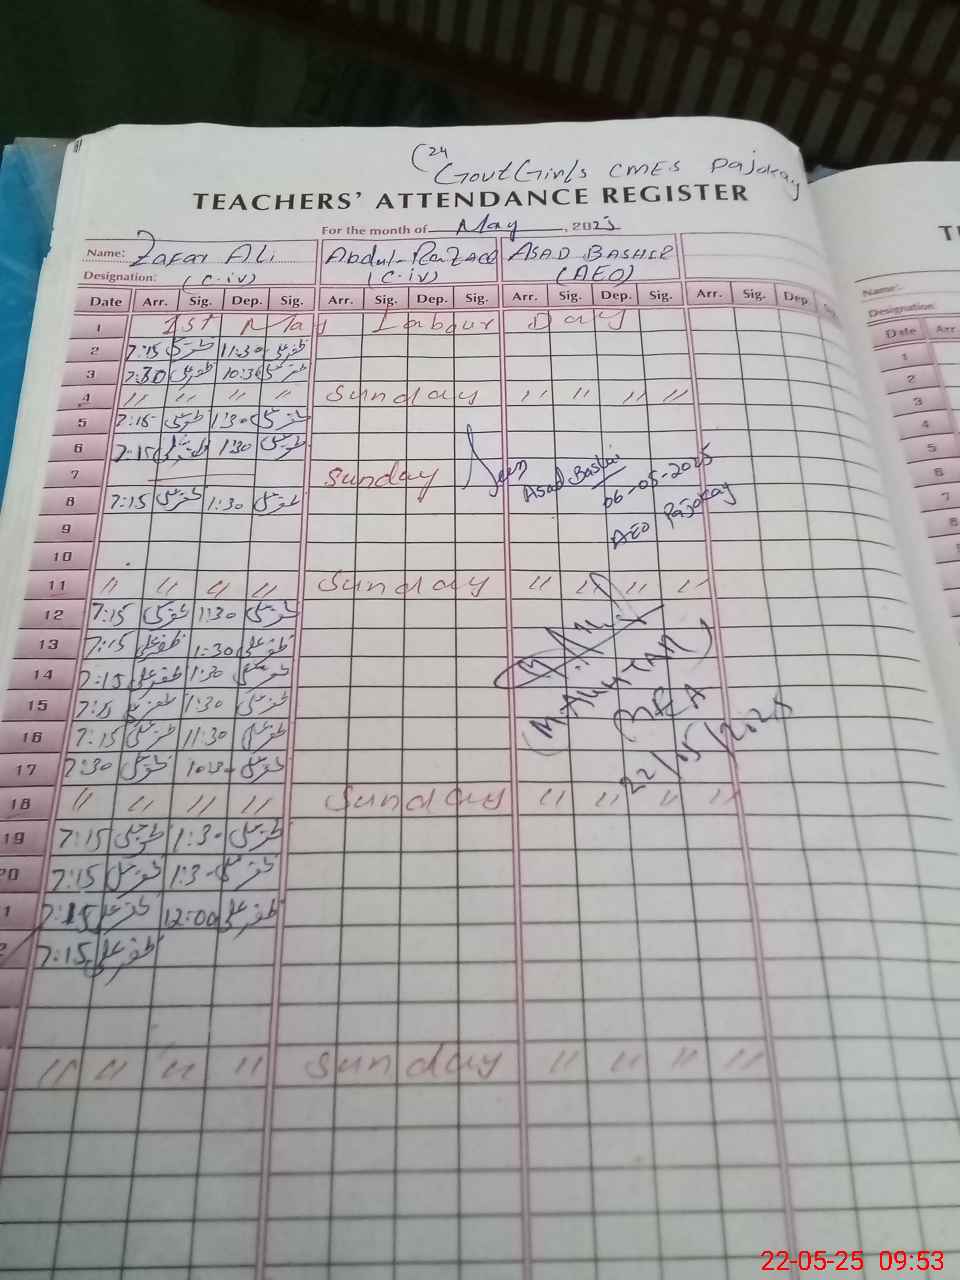 (24
Govt Girls CMES Pajokay
TEACHERS' ATTENDANCE REGISTER
For the month of May, 2025
Name: Zafar Ali Abdul-Razzaq ASAD BASHIR
Designation: (C-iv) (C-iv) (AEO)
Date Arr. Sig. Dep. Sig. Arr. Sig. Dep. Sig. Arr. Sig. Dep. Sig. Arr. Sig. Dep.
1 1st May Labour Day
2 7:15 ظفر علی 11:30 ظفر علی
3 7:30 ظفر علی 10:30 ظفر علی
4 " " " " Sunday " " " "
5 7:15 ظفر علی 1:30 ظفر علی
6 7:15 ظفر علی 1:30 ظفر علی
7 Sunday Seen Asad Bashir
06-05-2025
8 7:15 ظفر علی 1:30 ظفر علی
AEO Pajokay
9
10
11 " " " " Sunday " " " "
12 7:15 ظفر علی 1:30 ظفر علی
13 7:15 ظفر علی 1:30 ظفر علی
14 7:15 ظفر علی 1:30 ظفر علی
15 7:15 ظفر علی 1:30 ظفر علی
16 7:15 ظفر علی 11:30 ظفر علی
22/05/2025
17 7:30 ظفر علی 10:30 ظفر علی
18 " " " " Sunday " " " "
19 7:15 ظفر علی 1:30 ظفر علی
20 7:15 ظفر علی 1:30 ظفر علی
1 7:15 ظفر علی 12:00 ظفر علی
2 7:15 ظفر علی
" " " " Sunday " " " "
Name:
Designation
Date Arr
1
2
3
4
5
6
7
8
9
10
11
12
22-05-25 09:53